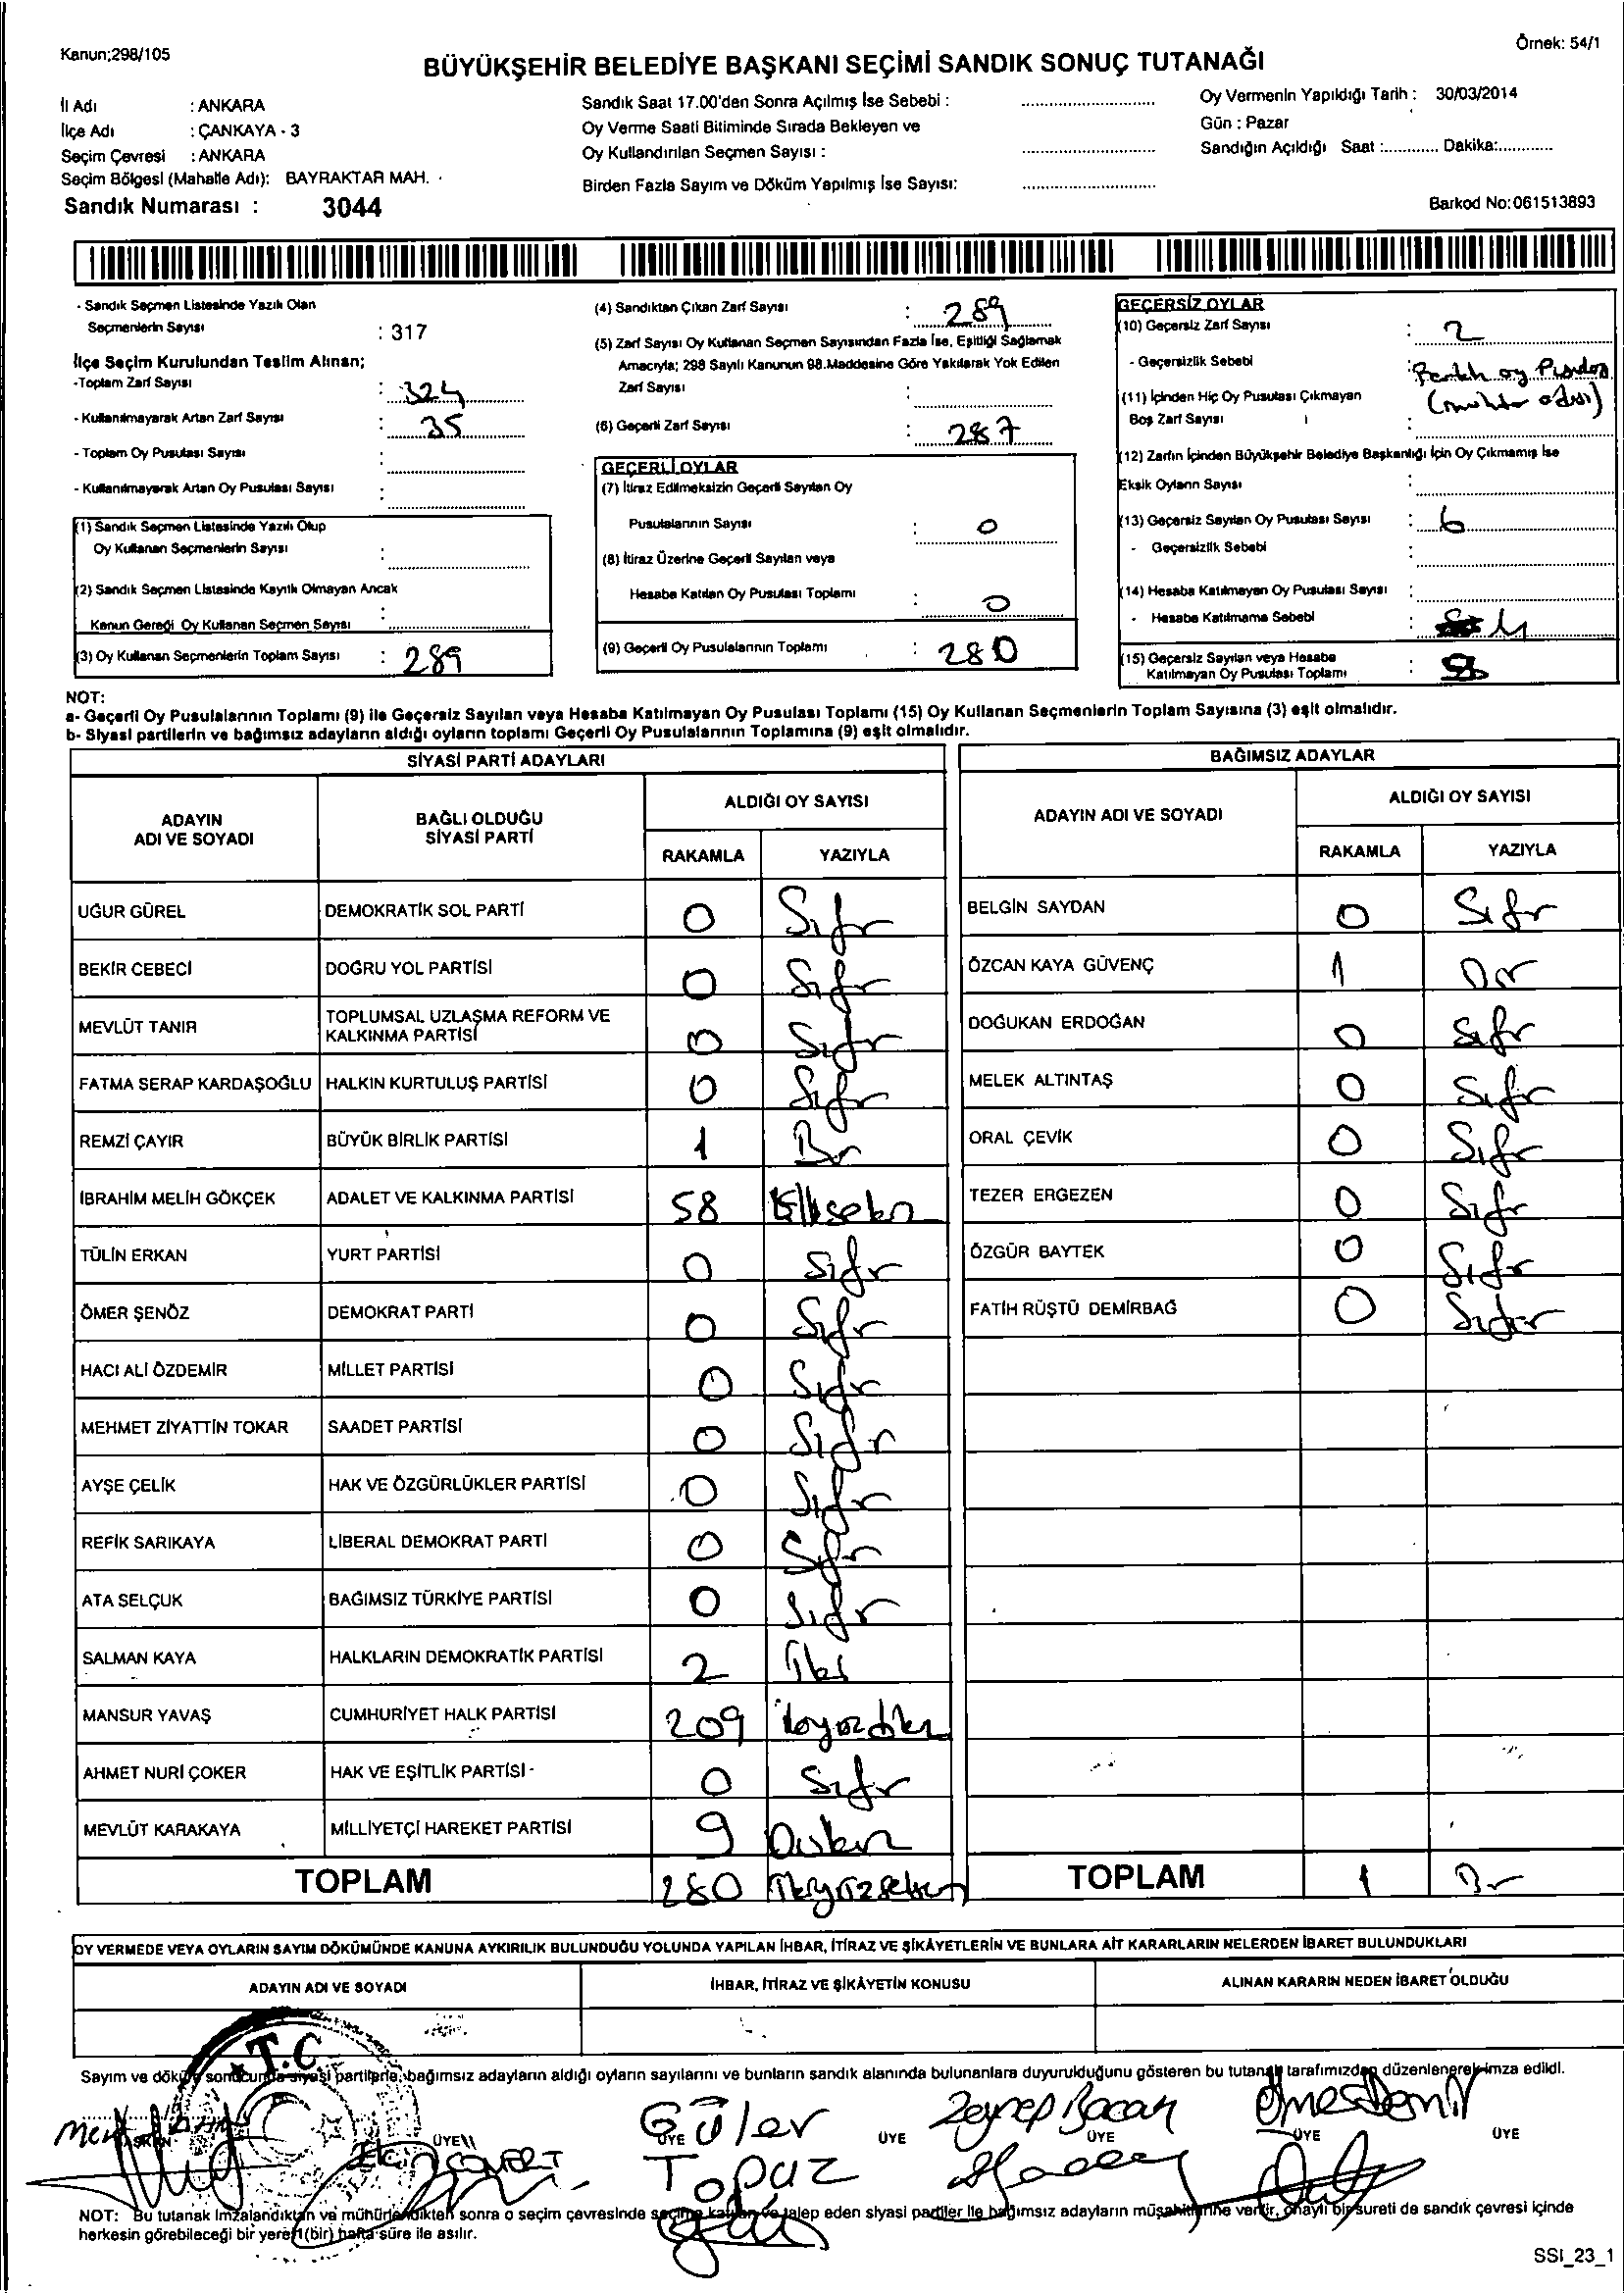 Kanun;298/105
Örnek: 54/1
BÜYÜKŞEHİR BELEDİYE BAŞKANI SEÇİMİ SANDIK SONUÇ TUTANAĞI
İl Adı : ANKARA
İlçe Adı : ÇANKAYA - 3
Seçim Çevresi : ANKARA
Seçim Bölgesi (Mahalle Adı): BAYRAKTAR MAH.
Sandık Numarası : 3044
Sandık Saat 17.00'den Sonra Açılmış İse Sebebi :
Oy Verme Saati Bitiminde Sırada Bekleyen ve
Oy Kullandırılan Seçmen Sayısı :
Birden Fazla Sayım ve Döküm Yapılmış İse Sayısı:
Oy Vermenin Yapıldığı Tarih : 30/03/2014
Gün : Pazar
Sandığın Açıldığı Saat :............ Dakika:............
Barkod No:061513893
- Sandık Seçmen Listesinde Yazılı Olan
Seçmenlerin Sayısı : 317
İlçe Seçim Kurulundan Teslim Alınan;
-Toplam Zarf Sayısı : 324
- Kullanılmayarak Artan Zarf Sayısı : 35
- Toplam Oy Pusulası Sayısı :
- Kullanılmayarak Artan Oy Pusulası Sayısı :
(1) Sandık Seçmen Listesinde Yazılı Olup
Oy Kullanan Seçmenlerin Sayısı :
(2) Sandık Seçmen Listesinde Kayıtlı Olmayan Ancak
Kanun Gereği Oy Kullanan Seçmen Sayısı :
(3) Oy Kullanan Seçmenlerin Toplam Sayısı : 289
(4) Sandıktan Çıkan Zarf Sayısı : 289
(5) Zarf Sayısı Oy Kullanan Seçmen Sayısından Fazla İse, Eşitliği Sağlamak
Amacıyla; 298 Sayılı Kanunun 98.Maddesine Göre Yakılarak Yok Edilen
Zarf Sayısı :
(6) Geçerli Zarf Sayısı : 287
GEÇERLİ OYLAR
(7) İtiraz Edilmeksizin Geçerli Sayılan Oy
Pusulalarının Sayısı : 0
(8) İtiraz Üzerine Geçerli Sayılan veya
Hesaba Katılan Oy Pusulası Toplamı : 0
(9) Geçerli Oy Pusulalarının Toplamı : 280
GEÇERSİZ OYLAR
(10) Geçersiz Zarf Sayısı : 2
- Geçersizlik Sebebi : oy
(11) İçinden Hiç Oy Pusulası Çıkmayan
Boş Zarf Sayısı :
(12) Zarfın İçinden Büyükşehir Belediye Başkanlığı İçin Oy Çıkmamış İse
Eksik Oyların Sayısı :
(13) Geçersiz Sayılan Oy Pusulası Sayısı : 6
- Geçersizlik Sebebi :
(14) Hesaba Katılmayan Oy Pusulası Sayısı :
- Hesaba Katılmama Sebebi :
(15) Geçersiz Sayılan veya Hesaba
Katılmayan Oy Pusulası Toplamı :
NOT:
a- Geçerli Oy Pusulalarının Toplamı (9) ile Geçersiz Sayılan veya Hesaba Katılmayan Oy Pusulası Toplamı (15) Oy Kullanan Seçmenlerin Toplam Sayısına (3) eşit olmalıdır.
b- Siyasi partilerin ve bağımsız adayların aldığı oyların toplamı Geçerli Oy Pusulalarının Toplamına (9) eşit olmalıdır.
SİYASİ PARTİ ADAYLARI
ADAYIN ADI VE SOYADI
BAĞLI OLDUĞU SİYASİ PARTİ
ALDIĞI OY SAYISI
RAKAMLA YAZIYLA
UĞUR GÜREL DEMOKRATİK SOL PARTİ 0 Sıfır
BEKİR CEBECİ DOĞRU YOL PARTİSİ 0 Sıfır
MEVLÜT TANIR TOPLUMSAL UZLAŞMA REFORM VE KALKINMA PARTİSİ 0 Sıfır
FATMA SERAP KARDAŞOĞLU HALKIN KURTULUŞ PARTİSİ 0 Sıfır
REMZİ ÇAYIR BÜYÜK BİRLİK PARTİSİ 1 Bir
İBRAHİM MELİH GÖKÇEK ADALET VE KALKINMA PARTİSİ 58 Ellisekiz
TÜLİN ERKAN YURT PARTİSİ 0 Sıfır
ÖMER ŞENÖZ DEMOKRAT PARTİ 0 Sıfır
HACI ALİ ÖZDEMİR MİLLET PARTİSİ 0 Sıfır
MEHMET ZİYATTİN TOKAR SAADET PARTİSİ 0 Sıfır
AYŞE ÇELİK HAK VE ÖZGÜRLÜKLER PARTİSİ 0 Sıfır
REFİK SARIKAYA LİBERAL DEMOKRAT PARTİ 0 Sıfır
ATA SELÇUK BAĞIMSIZ TÜRKİYE PARTİSİ 0 Sıfır
SALMAN KAYA HALKLARIN DEMOKRATİK PARTİSİ 2 İki
MANSUR YAVAŞ CUMHURİYET HALK PARTİSİ 209 ikiyüzdokuz
AHMET NURİ ÇOKER HAK VE EŞİTLİK PARTİSİ 0 Sıfır
MEVLÜT KARAKAYA MİLLİYETÇİ HAREKET PARTİSİ 9 Dokuz
TOPLAM 280 İkiyüzseksen
BAĞIMSIZ ADAYLAR
ADAYIN ADI VE SOYADI
ALDIĞI OY SAYISI
RAKAMLA YAZIYLA
BELGİN SAYDAN 0 Sıfır
ÖZCAN KAYA GÜVENÇ 1 Bir
DOĞUKAN ERDOĞAN 0 Sıfır
MELEK ALTINTAŞ 0 Sıfır
ORAL ÇEVİK 0 Sıfır
TEZER ERGEZEN 0 Sıfır
ÖZGÜR BAYTEK 0 Sıfır
FATİH RÜŞTÜ DEMİRBAĞ 0 Sıfır
TOPLAM 1 Bir
OY VERMEDE VEYA OYLARIN SAYIM DÖKÜMÜNDE KANUNA AYKIRILIK BULUNDUĞU YOLUNDA YAPILAN İHBAR, İTİRAZ VE ŞİKÂYETLERİN VE BUNLARA AİT KARARLARIN NELERDEN İBARET BULUNDUKLARI
ADAYIN ADI VE SOYADI
İHBAR, İTİRAZ VE ŞİKÂYETİN KONUSU
ALINAN KARARIN NEDEN İBARET OLDUĞU
T.C
Sayım ve döküm sonucunda siyasi partilerle, bağımsız adayların aldığı oyların sayılarını ve bunların sandık alanında bulunanlara duyurulduğunu gösteren bu tutanak tarafımızdan düzenlenerek imza edildi.
BAŞKAN ÜYE ÜYE ÜYE ÜYE ÜYE ÜYE
Güler Topuz
Zeynep
NOT: Bu tutanak imzalandıktan ve mühürlendikten sonra o seçim çevresinde seçime katılan ve talep eden siyasi partiler ile bağımsız adayların müşahitlerine verilir, onaylı bir sureti de sandık çevresi içinde
herkesin görebileceği bir yere 1 (bir) hafta süre ile asılır.
SSI_23_1